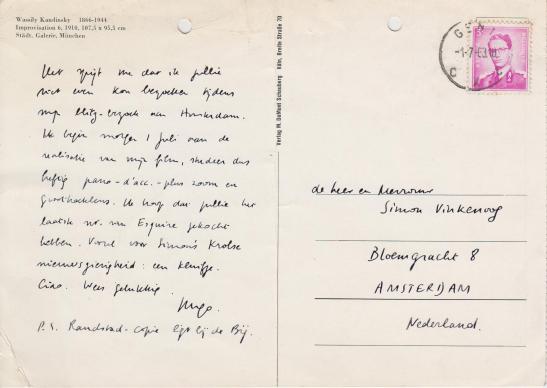 Wassily Kandinsky 1866-1944
Improvisation 6, 1910, 107,5 x 95,5 cm
Städt. Galerie, München
Het spijt me dat ik jullie
niet even kon bezoeken tijdens
mijn blitz-bezoek aan Amsterdam.
Ik begin morgen 1 juli aan de
realisatie van mijn film, studeer dus
heftig pano-d'acc.-plus zoom en
Ik hoop dat jullie het
laatste nr. van Esquire gekocht
hebben. Vooral voor Simon's
nieuwsgierigheid: een kluifje.
Ciao. Wees gelukkig.
Hugo.
P.S. Randstad-copie ligt bij de Bij.
Verlag M. DuMont Schauberg Köln, Breite Straße 70
GEN
-1-7-63
C
de heer en Mevrouw
Simon Vinkenoog
Bloemgracht 8
AMSTERDAM
Nederland.